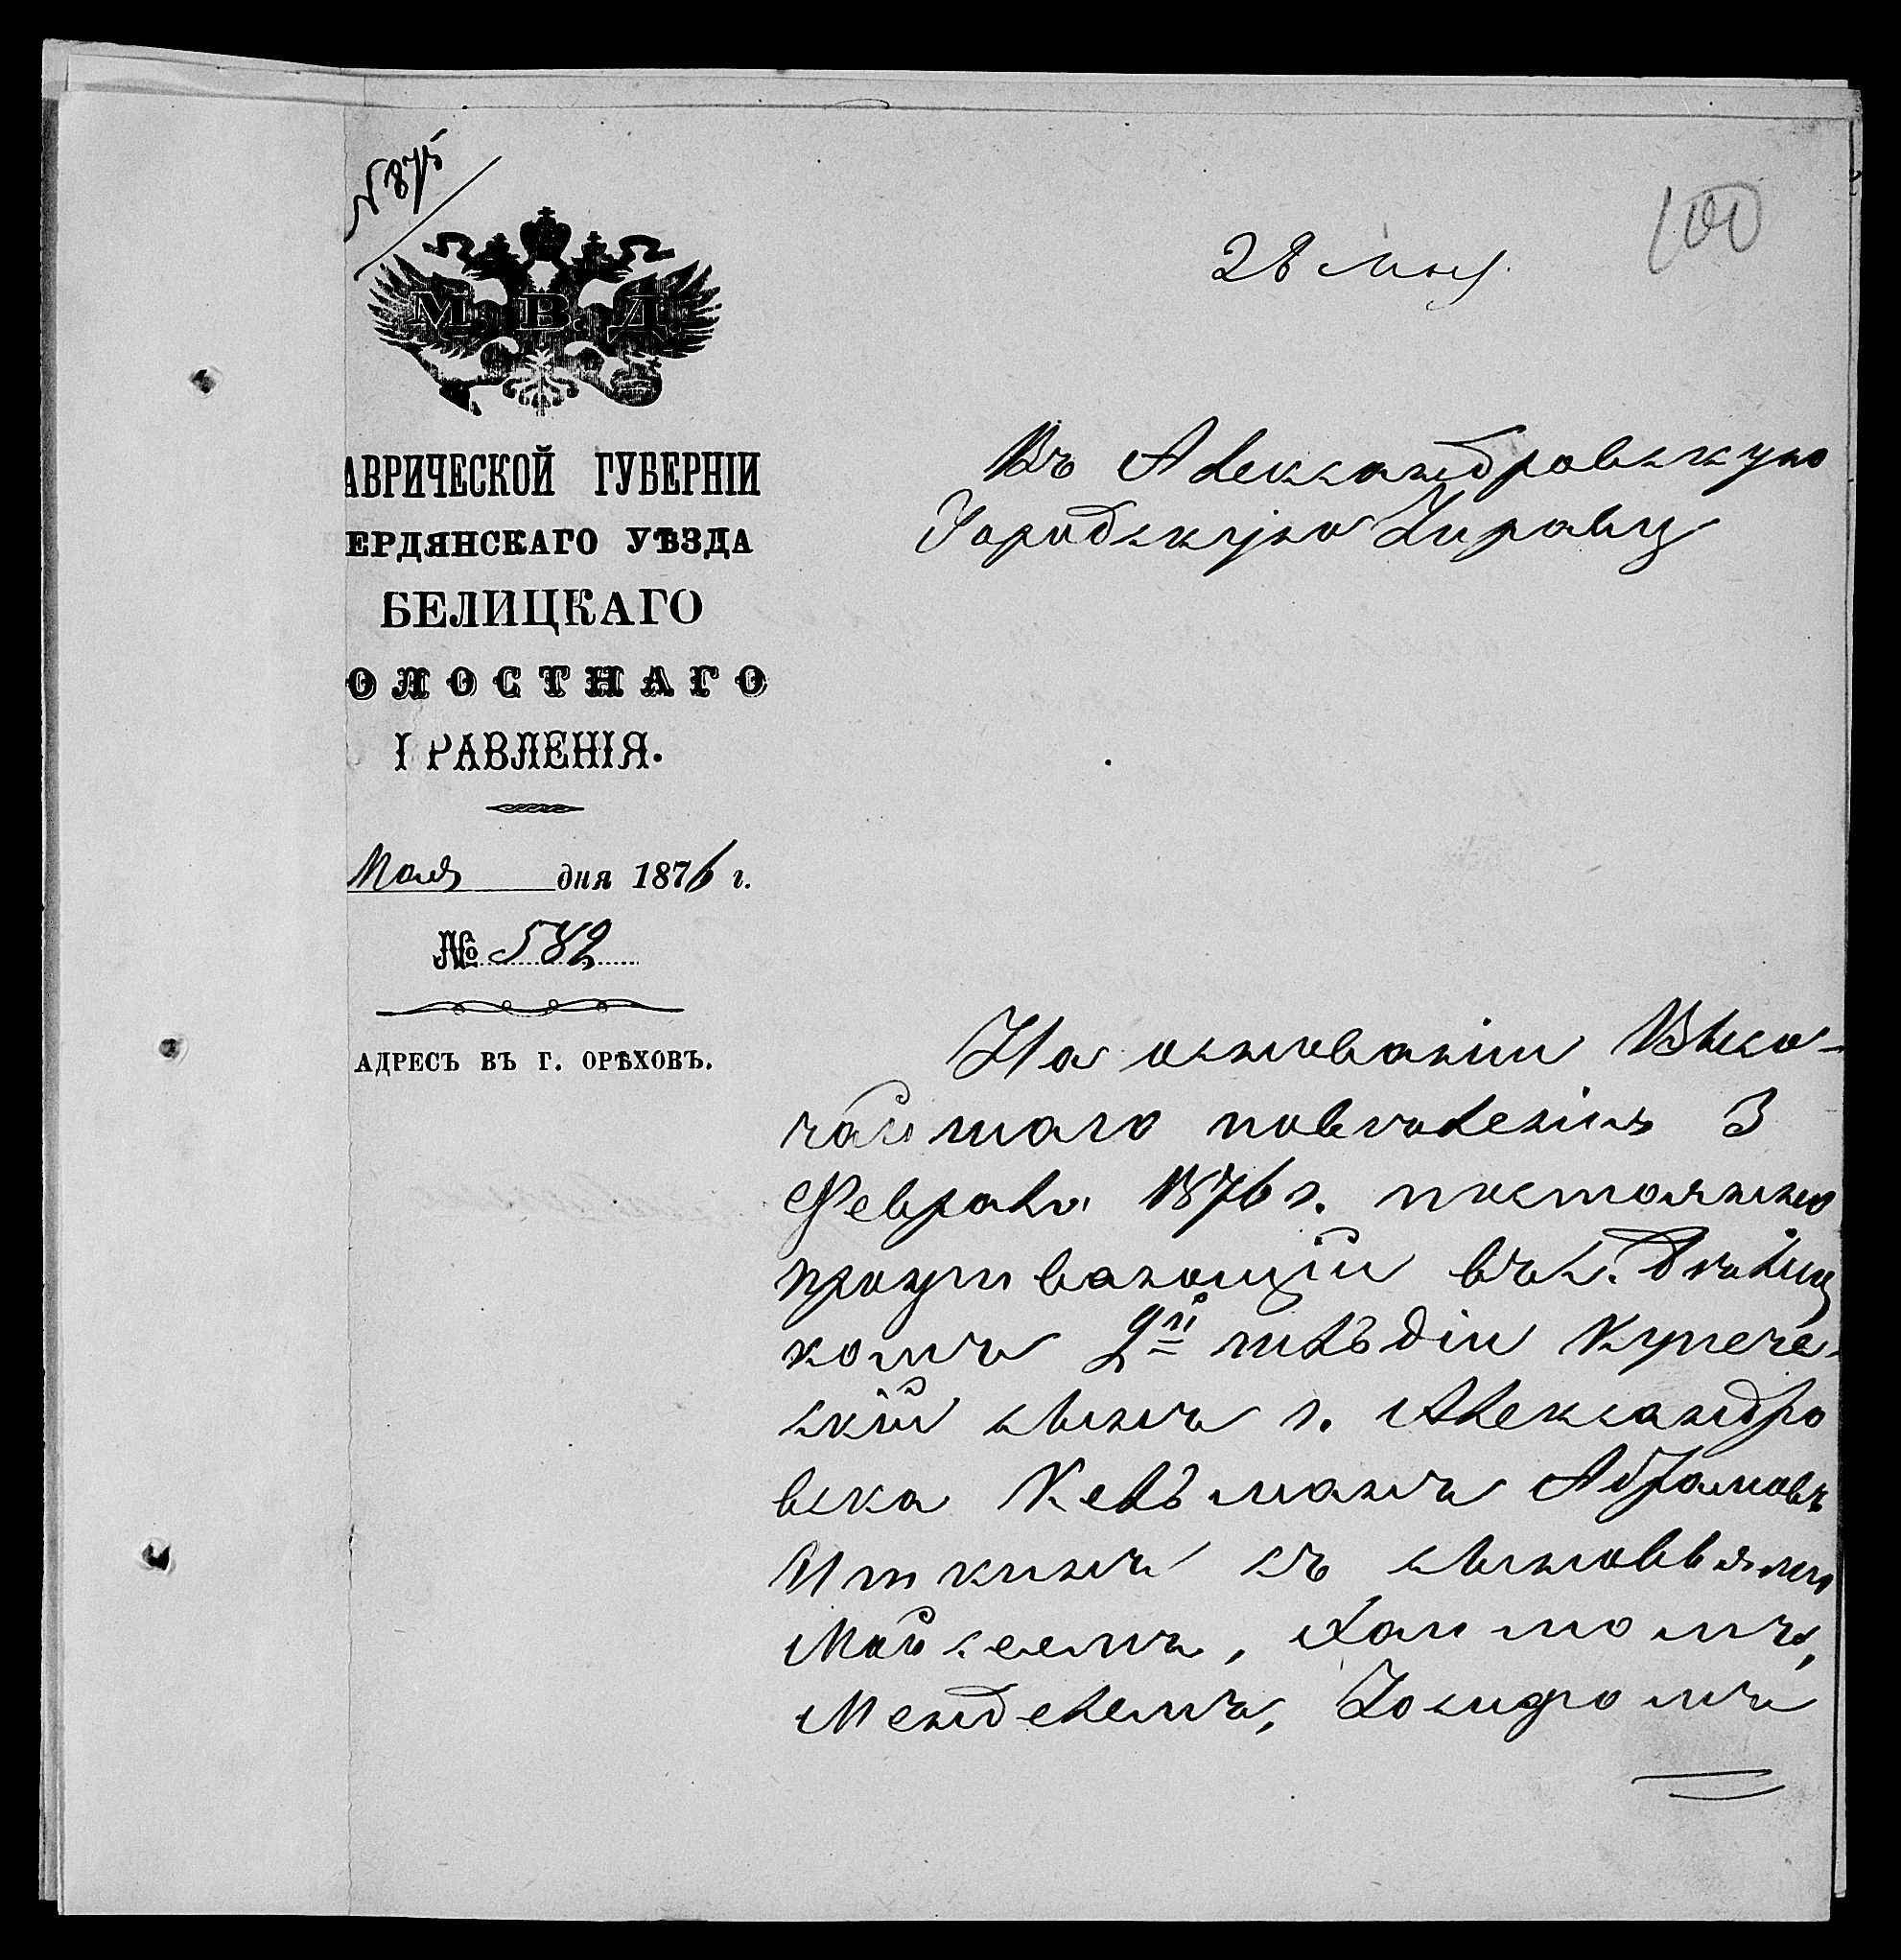 № 875
100
28 мая
М. В. Д.
АВРИЧЕСКОЙ ГУБЕРНІИ
ЕРДЯНСКАГО УѢЗДА
БЕЛИЦКАГО
ОЛОСТНАГО
ПРАВЛЕНІЯ.
Мая дня 1876 г.
№ 582
АДРЕСЪ ВЪ Г. ОРѢХОВЪ.
Въ Александровскую
Городскую Управу
На основаніи Высо-
чайшаго повеленія 3
Февраля 1876 г. постоянно
проживающій въ с. Белиц
комъ 2й гильдіи Купече-
скій сынъ г. Александро
вска Кельманъ Абрамовъ
Иткинъ съ сыновьями
Мойсеемъ, Хаимомъ,
Менделемъ, Іосифомъ